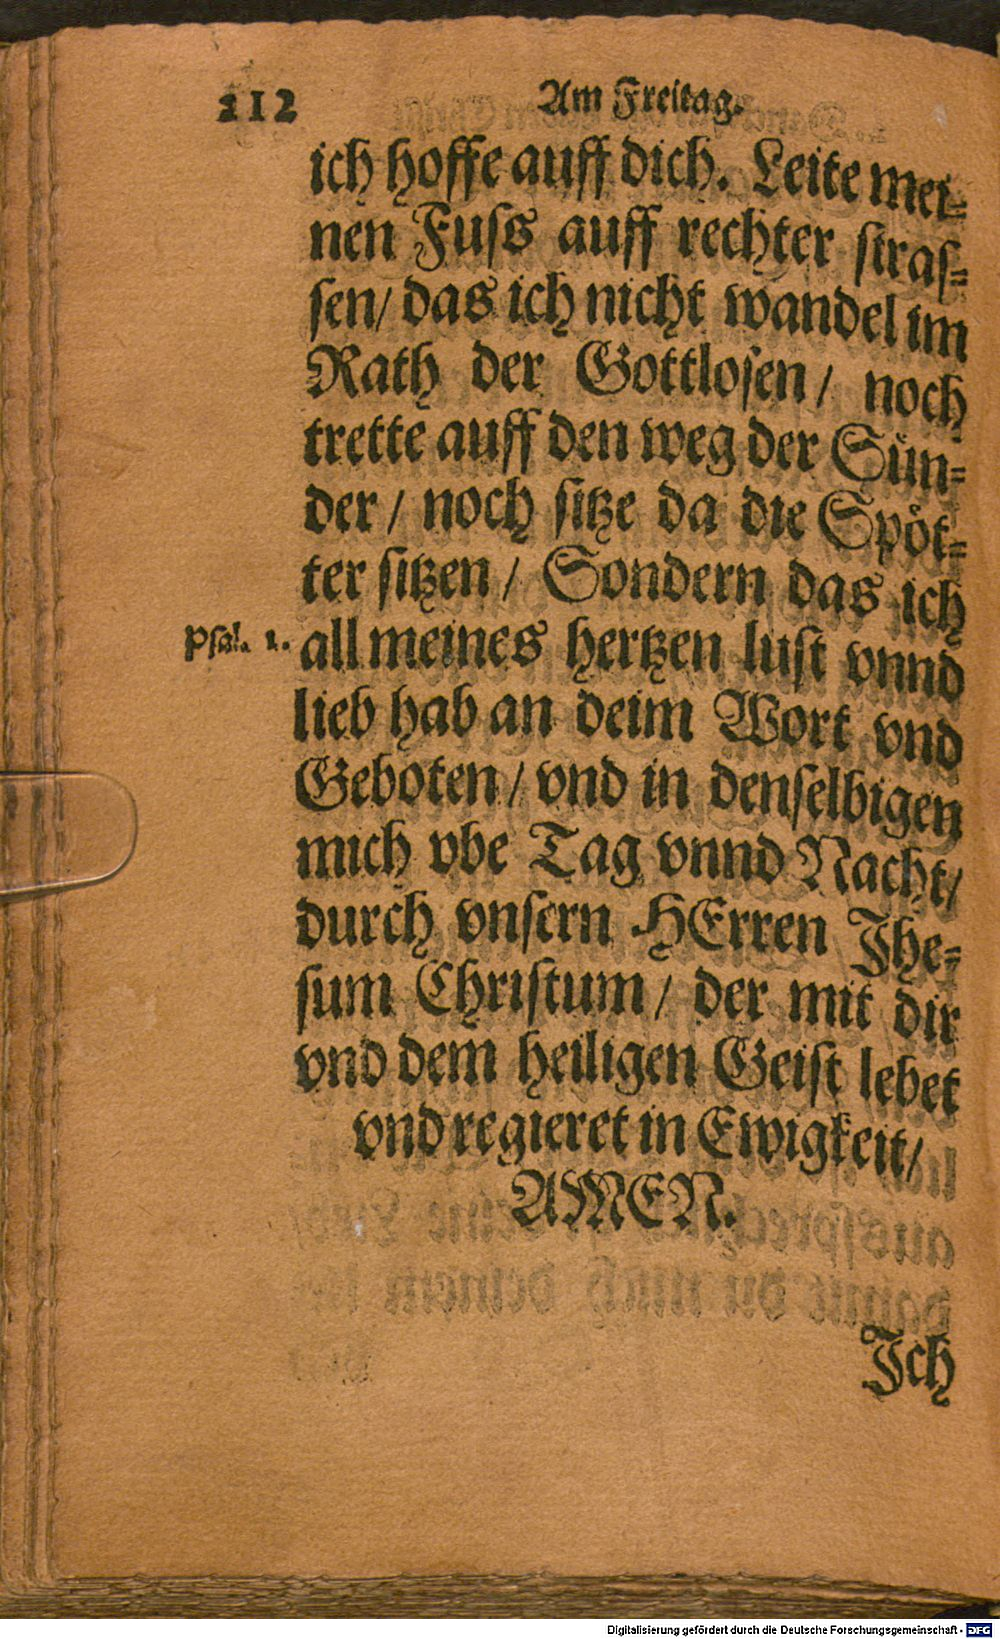 212 Am Freitag.
ich hoffe auff dich. Leite mei-
nen Fuſs auff rechter ſtraſ-
ſen/ das ich nicht wandel im
Rath der Gottloſen/ noch
trette auff den weg der Sün-
der/ noch ſitze da die Spöt-
ter ſitzen/ Sondern das ich
Psal. 1. all meines hertzen luſt vnnd
lieb hab an deim Wort vnd
Geboten/ vnd in denſelbigen
mich vbe Tag vnnd Nacht/
durch vnſern HErren Jhe-
ſum Chriſtum/ der mit dir
vnd dem heiligen Geiſt lebet
vnd regieret in Ewigkeit/
AMEN.
Ich
Digitalisierung gefördert durch die Deutsche Forschungsgemeinschaft - DFG